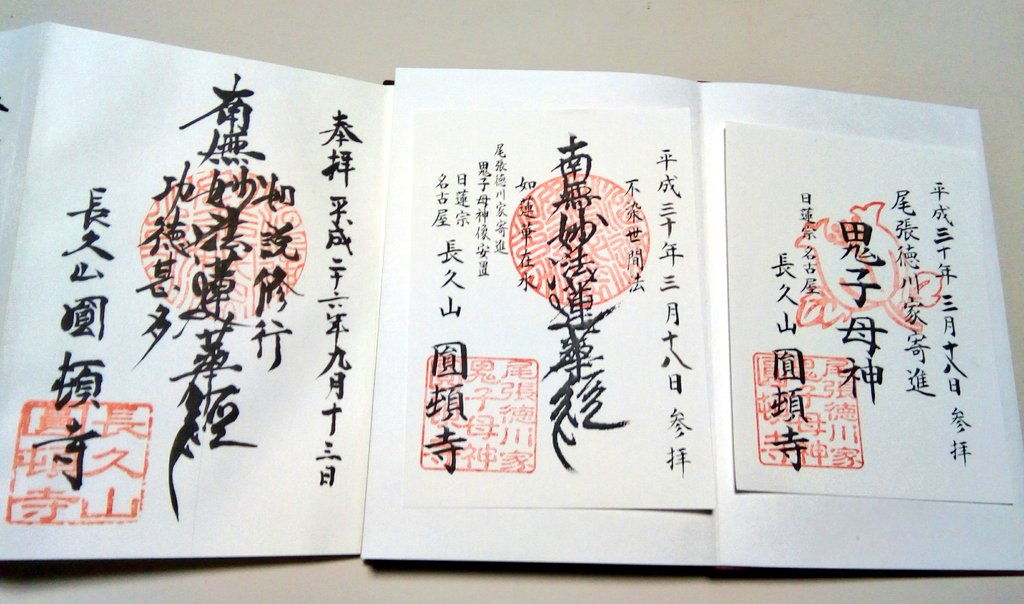 奉拝 平成二十六年九月十三日
如説修行
南無妙法蓮華経
功徳甚多
長久山 圓頓寺
長久山
圓頓寺
平成三十年三月十八日 参拝
不染世間法
南無妙法蓮華経
如蓮華在水
尾張徳川家寄進
鬼子母神像安置
日蓮宗
名古屋 長久山 圓頓寺
尾張徳川家
鬼子母神
圓頓寺
平成三十年三月十八日 参拝
尾張徳川家寄進
鬼子母神
日蓮宗名古屋
長久山 圓頓寺
尾張徳川家
鬼子母神
圓頓寺